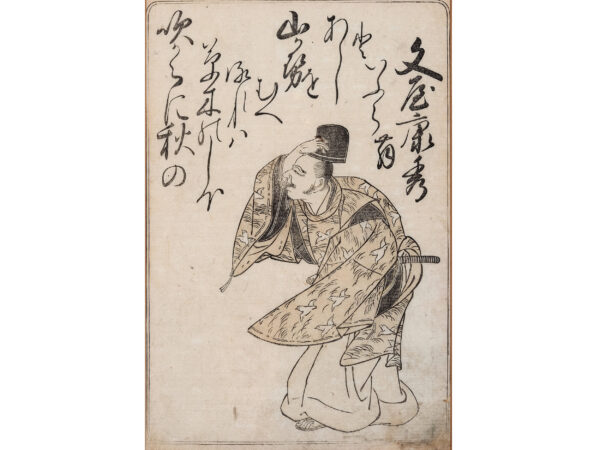 文屋康秀
吹からに秋の
草木のしほ
るれは
むへ
山風を
あらし
といふらむ